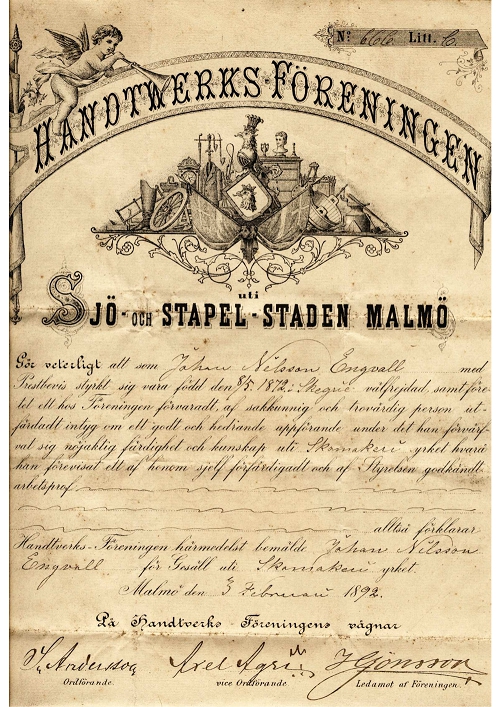 Nº 666 Litt. C.
HANDTWERKS-FÖRENINGEN
uti
SJÖ- OCH STAPEL-STADEN MALMÖ
Gör veterligt att som Johan Nilsson Engvall med
Prestbevis styrkt sig vara född den 8/5 1872 i Skegrie välfrejdad, samt före-
tet ett hos Föreningen förvaradt, af sakkunnig och trovärdig person ut-
färdadt intyg om ett godt och hedrande uppförande under det han förvärf-
vat sig nöjaktig färdighet och kunskap uti Skomakeri yrket hvarå
han förevisat ett af honom sjelf förfärdigadt och af Styrelsen godkändt
arbetsprof.
alltså förklarar
Handtverks-Föreningen härmedelst bemälde Johan Nilsson
Engvall för Gesäll uti Skomakeri yrket.
Malmö den 3 Februari 1892.
På Handtverks Föreningens vägnar
S. Andersson Axel Agri HJönsson
Ordförande. vice Ordförande. Ledamot af Föreningen.